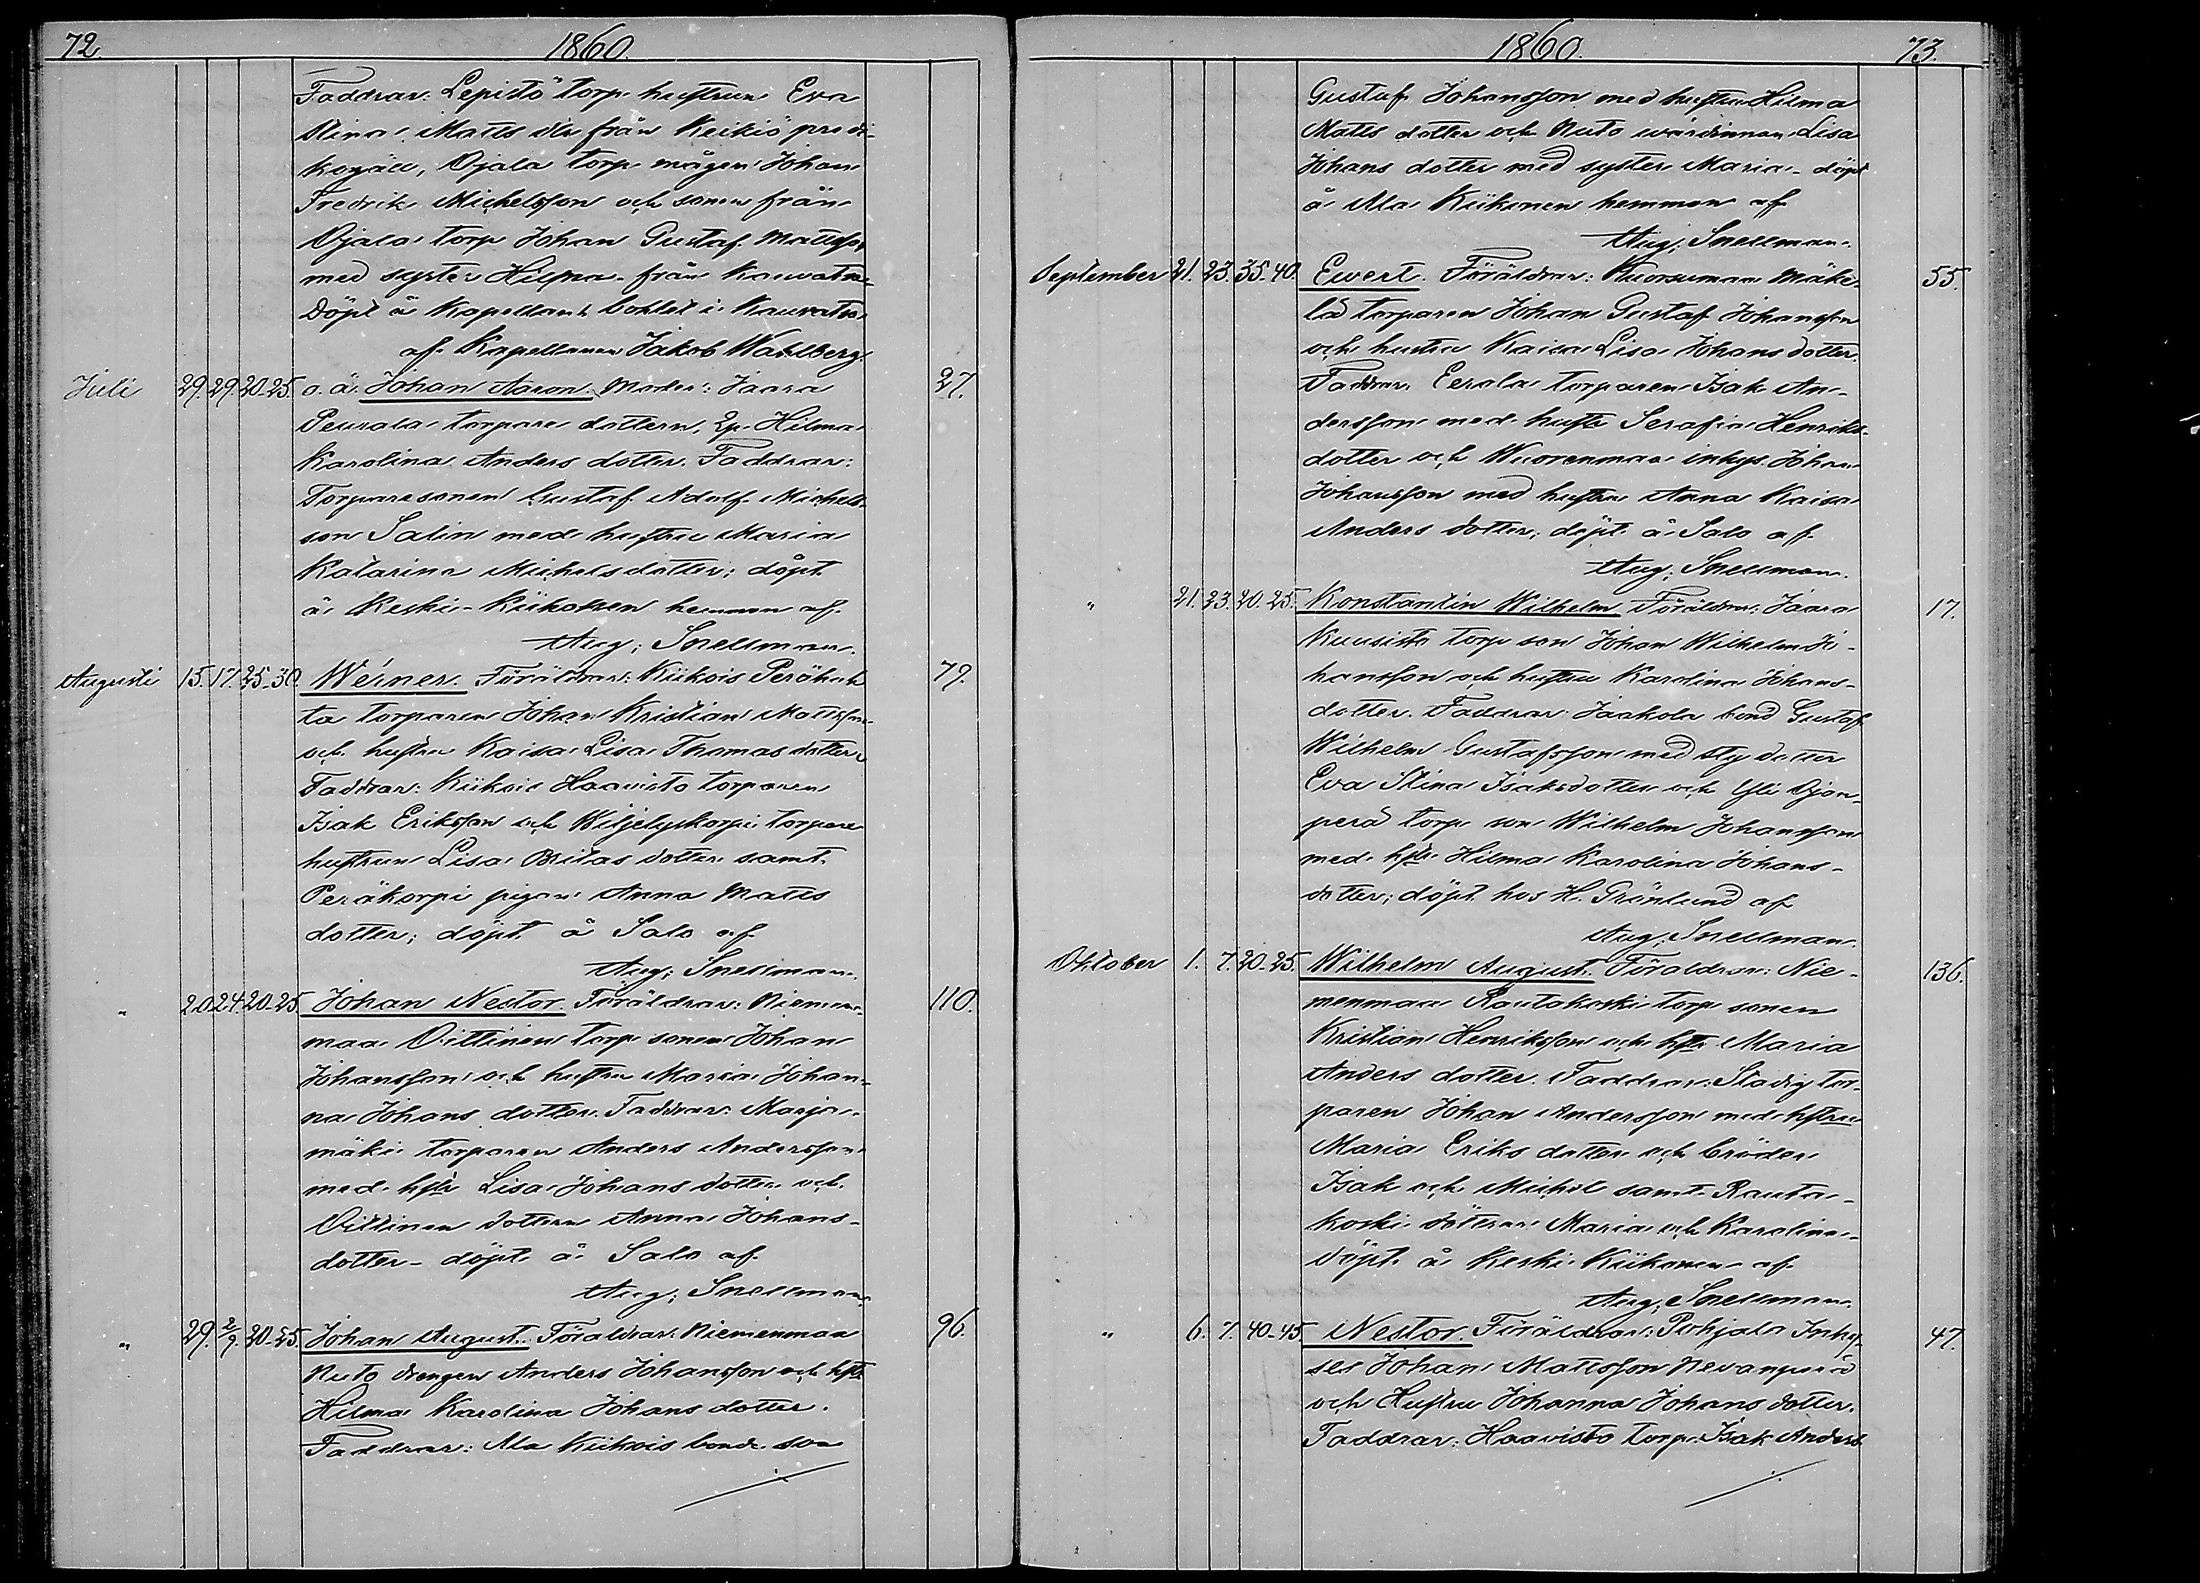 72. 1860.
Faddrar: Lepistö torp. hustrun Eva
Stina Matts dtr från Keikiö predi-
kogäll, Ojala torp. mågen Johan
Fredrik Michelsson och sonen från
Ojala torp Johan Gustaf Mattsson
med syster Hilma från Kauvatsa
Döpt å Kapellans bohlet i Kauvatsa
af Kapellanen Jakob Wahlberg.
Juli 29. 29. 20-25. o.ä. Johan Aaron. Moder: Jaara 27.
Peurala torpare dottern, Qp. Hilma
Karolina Anders dotter. Faddrar:
Torparesonen Gustaf Adolf Michels-
son Salin med hustru Maria
Katarina Michelsdotter; döpt
å Keski-Kiikoisen hemman af
Aug. Snellman.
Augusti 15. 17. 25-30. Werner. Föräldrar: Kiikois Peräkul- 79.
ta torparen Johan Kristian Mattsson
och hustru Kaisa Lisa Thomas dotter
Faddrar: Kiikois Haavisto torparen
Isak Eriksson och Wiljelyskorpi torpare
hustrun Lisa Britas dotter samt
Peräkorpi pigan Anna Matts
dotter; döpt å Salo af
Aug. Snellman.
" 20. 24. 20-25. Johan Nestor. Föräldrar: Niemen- 110.
maa Vittinen torp. sonen Johan
Johansson och hustru Maria Johan-
na Johans dotter. Faddrar: Marja-
mäki torparen Anders Andersson
med hstr. Lisa Johans dotter och
Vittinen dottern Anna Johans-
dotter - döpt å Salo af
Aug. Snellman.
" 29. 2/9. 20-25. Johan August. Föräldrar: Niemenmaa 96.
Nuto drengen Anders Johansson och hstr
Hilma Karolina Johans dotter.
Faddrar: Ala Kiikois bonde son
1860. 73.
Gustaf Johansson med hustru Hilma
Matts dotter och Nuto wärdinnan Lisa
Johans dotter med syster Maria - döpt
å Ala Kiikonen hemman af
Aug. Snellman.
September 21. 23. 35-40. Ewert. Föräldrar: Wuorenmaa Mäke- 55.
lä torparen Johan Gustaf Johansson
och hustru Kaisa Lisa Johans dotter.
Faddrar: Eerola torparen Isak An-
dersson med hustr Serafia Henriks-
dotter och Wuorenmaa inhys. Johan
Johansson med hustru Anna Kaisa
Anders dotter; döpt å Salo af
Aug. Snellman.
" 21. 23. 20-25. Konstantin Wilhelm. Föräldrar: Jaara 17.
Kuusisto torp. son Johan Wilhelm Jo-
hansson och hustru Karolina Johans-
dotter. Faddrar: Jaakola bond Gustaf
Wilhelm Gustafsson med sty dotter
Eva Stina Isaksdotter och Yli Ojan-
perä torp. son Wilhelm Johansson
med hstr. Hilma Karolina Johans-
dotter; döpt hos H. Grönlund af
Aug. Snellman.
Oktober 1. 7. 20-25. Wilhelm August. Föräldrar: Nie- 136.
menmaa Rautakoski torp. sonen
Kristian Henriksson och hstr. Maria
Anders dotter. Faddrar: Stadig tor-
paren Johan Andersson med hstrun
Maria Eriks dotter och bröder
Isak och Michel samt Rauta-
koski döttrar Maria och Karolina -
döpt å Keski Kiikonen af
Aug. Snellman.
" 6. 7. 40-45. Nestor. Föräldrar: Pohjala Inhy- 47.
ses Johan Mattsson Nevanperä
och Hustru Johanna Johans dotter.
Faddrar: Haavisto torp. Isak Anders